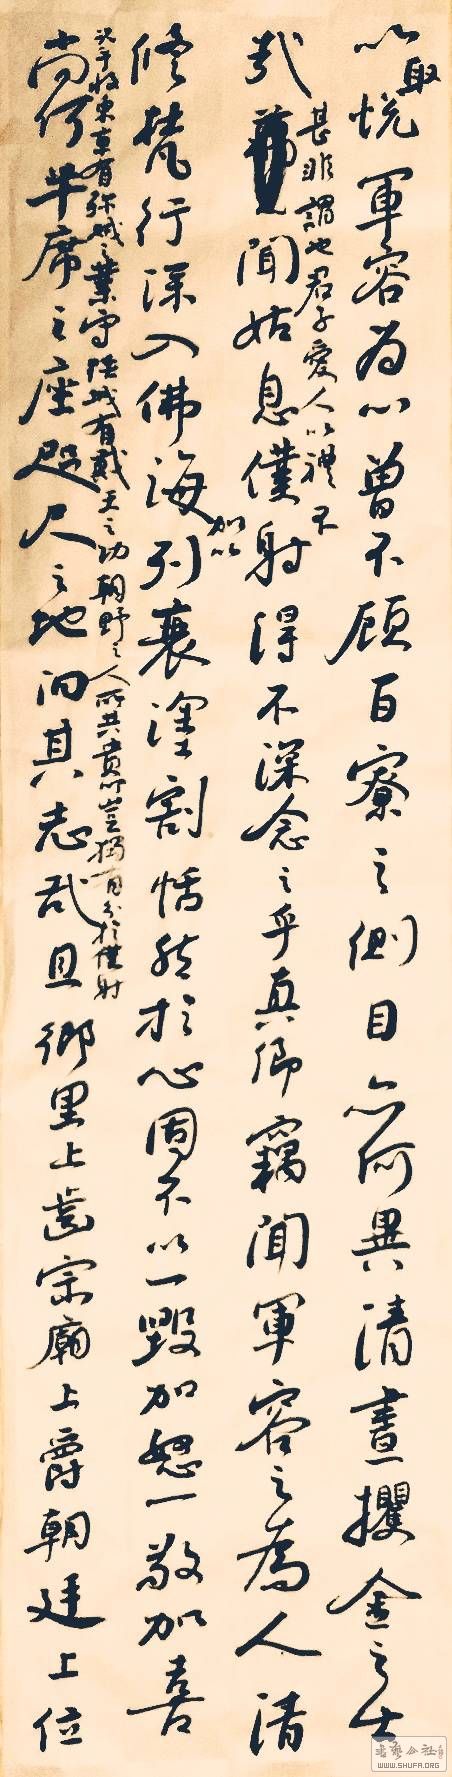 以取悅軍容為心曾不顧百寮之側目亦何異清晝攫金之士
甚非謂也君子愛人以禮不
哉聞姑息僕射得不深念之乎真卿竊聞軍容之為人清
修梵行深入佛海加以利衰塗割恬然於心固不以一毀加怒一敬加喜
況乎收東京有殄賊之業守陝城有戴天之功朝野之人所共貴仰豈獨有分於僕射
尚何半席之座咫尺之地汩其志哉且鄉里上齒宗廟上爵朝廷上位
书艺公社
WWW.SHUFA.ORG